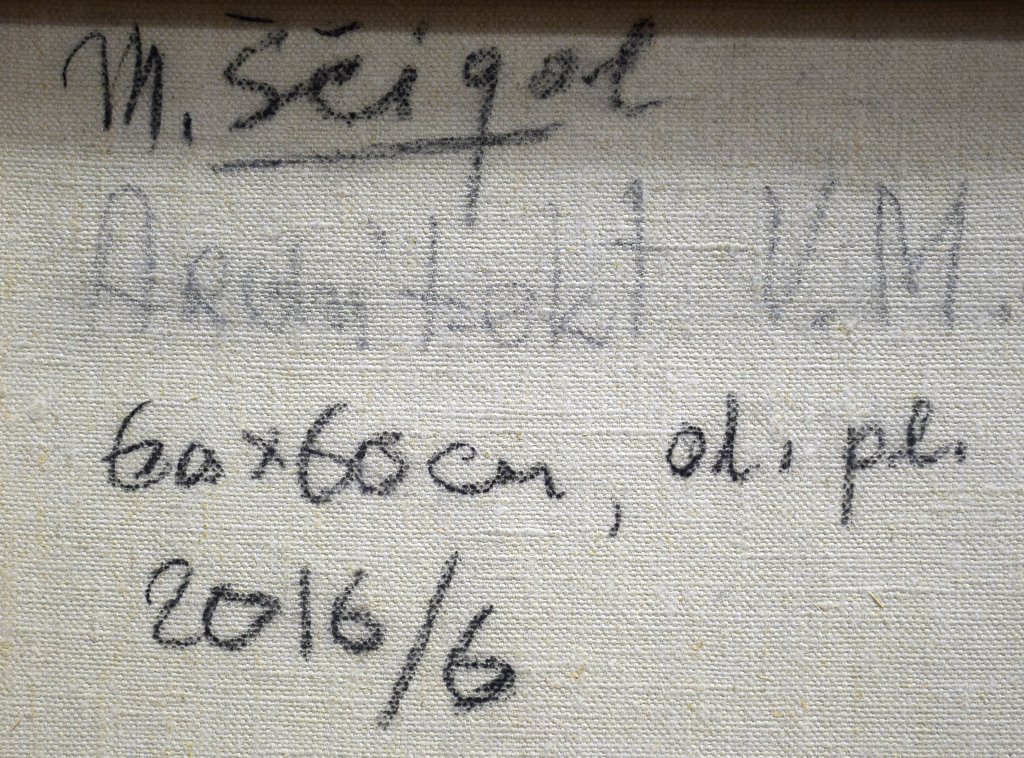 M. Ščigol
Architekt V.M.
60x60cm, ol. pl.
2016/6